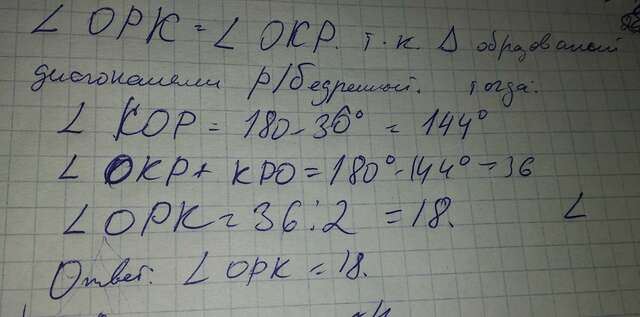 ∠ OPK = ∠ OKP. т.к Δ образованый
диогоналями р/бедренный. тогда:
∠ KOP = 180 - 36° = 144°
∠ OKP + KPO = 180° - 144° = 36
∠ OPK = 36 : 2 = 18. ∠
Ответ. ∠ OPK = 18.